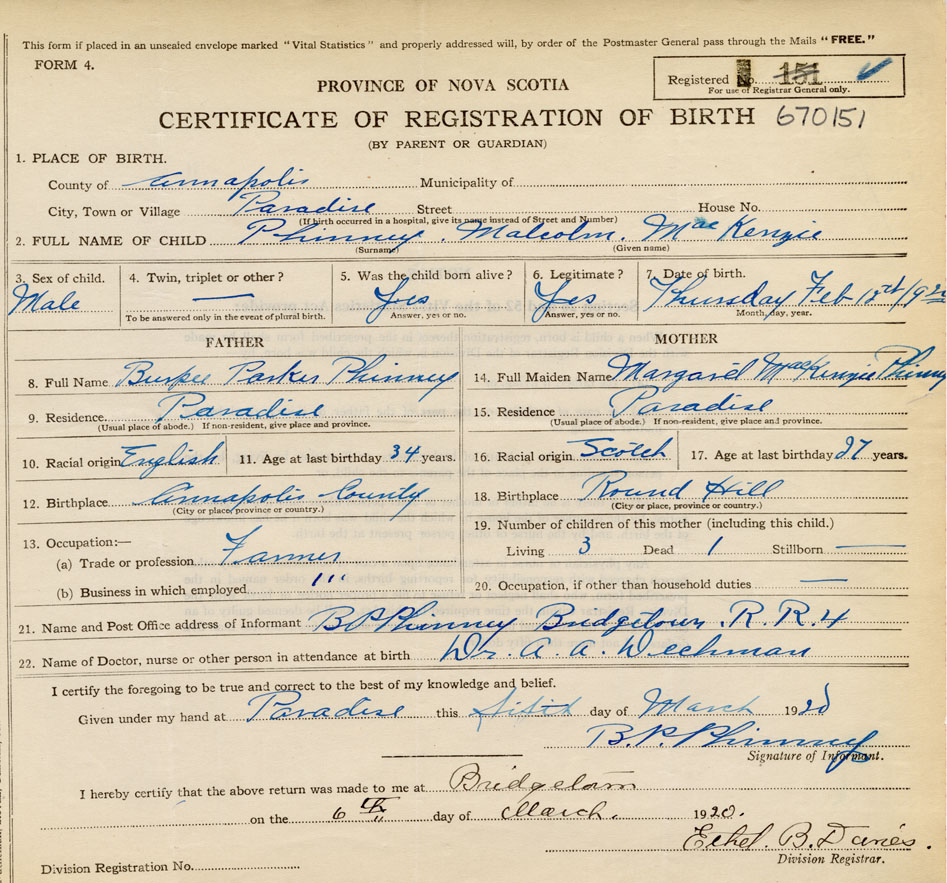 This form if placed in an unsealed envelope marked "Vital Statistics" and properly addressed will, by order of the Postmaster General pass through the Mails "FREE."
FORM 4.
Registered No. 151
For use of Registrar General only.
PROVINCE OF NOVA SCOTIA
CERTIFICATE OF REGISTRATION OF BIRTH 670151
(BY PARENT OR GUARDIAN)
1. PLACE OF BIRTH.
County of Annapolis Municipality of
City, Town or Village Paradise Street House No.
(If birth occurred in a hospital, give its name instead of Street and Number)
2. FULL NAME OF CHILD Phinney. Malcolm. MacKenzie
(Surname) (Given name)
3. Sex of child. 4. Twin, triplet or other? 5. Was the child born alive? 6. Legitimate? 7. Date of birth.
Male — Yes Yes Thursday Feb 12th/1920
To be answered only in the event of plural birth. Answer, yes or no. Answer, yes or no. Month, day, year.
FATHER MOTHER
8. Full Name Burpee Parker Phinney 14. Full Maiden Name Margaret MacKenzie Phinney
9. Residence Paradise 15. Residence Paradise
(Usual place of abode.) If non-resident, give place and province. (Usual place of abode.) If non-resident, give place and province.
10. Racial origin English 11. Age at last birthday 34 years. 16. Racial origin Scotch 17. Age at last birthday 27 years.
12. Birthplace Annapolis County 18. Birthplace Round Hill
(City or place, province or country.) (City or place, province or country.)
19. Number of children of this mother (including this child.)
13. Occupation:—
Living 3 Dead 1 Stillborn —
(a) Trade or profession Farmer
20. Occupation, if other than household duties —
(b) Business in which employed " "
21. Name and Post Office address of Informant B P Phinney Bridgetown. R. R. 4
22. Name of Doctor, nurse or other person in attendance at birth Dr. A. A.
I certify the foregoing to be true and correct to the best of my knowledge and belief.
Given under my hand at Paradise this day of March 1920
B. P. Phinney
Signature of Informant.
I hereby certify that the above return was made to me at Bridgetown
on the 6th day of March. 1920.
Ethel. B. Davies.
Division Registrar.
Division Registration No.